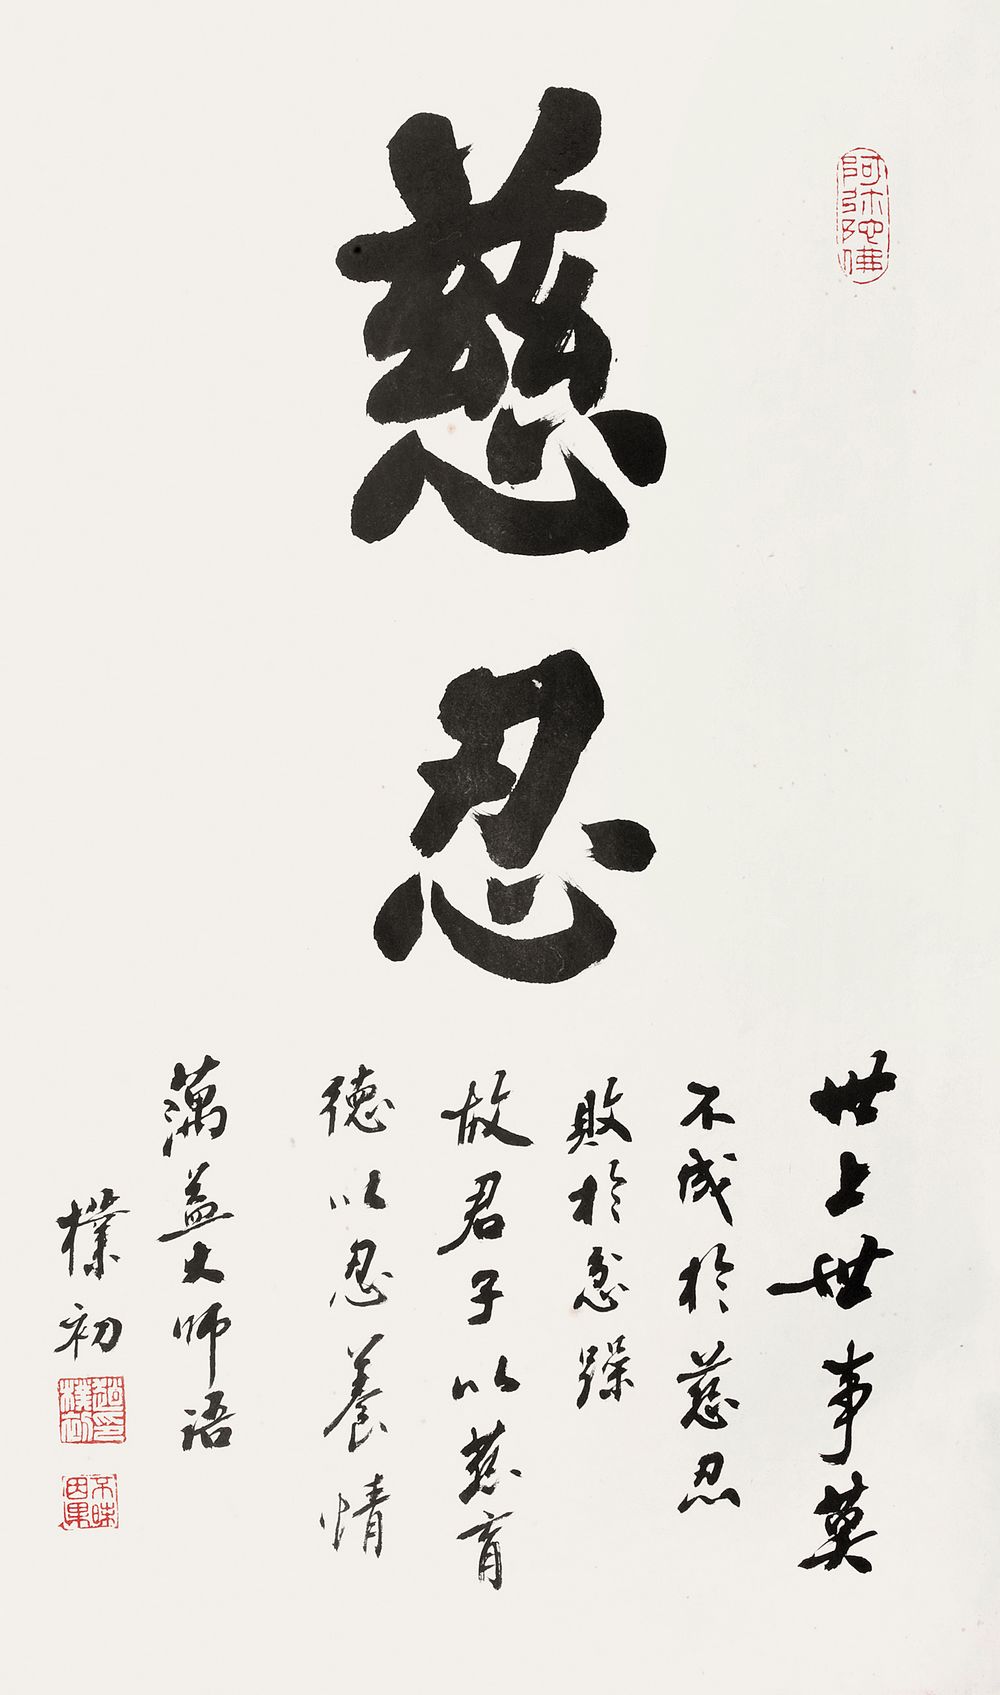 慈忍
阿弥陀佛
世上世事莫
不成於慈忍
敗於忿躁
故君子以慈育
德以忍養情
蕅益大师语
樸初
趙樸初印
不昧因果